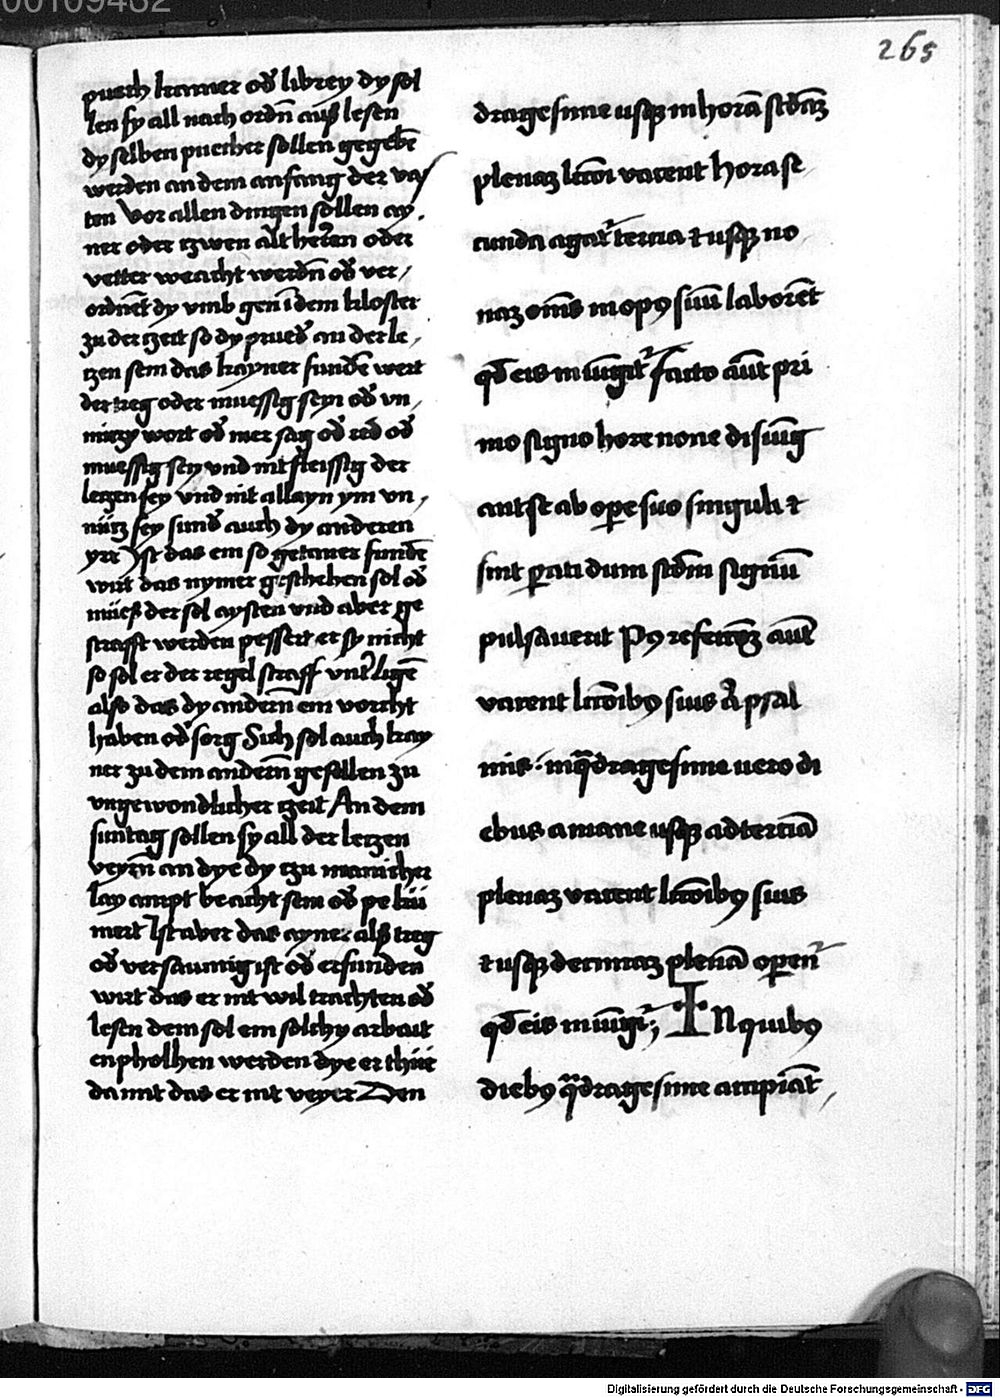 00109432
265
puech kamer od̕ librey dy sol
len sy all nach ordn̄ auß lesen
dy selben puecher sollen gegebē
werden an dem anfang der vas
ten Vor allen dingen sollen ay,
ner oder tzwen alt herren oder
vetter weacht werdn̄ od̕ ver,
ordnet dy vmb gen ī dem kloster
zu der tzeit so dy prued̕ an der le,
tzen sein das kayner fundē wert
der treg oder muessig seyn od̕ vn,
nutzy wort od̕ mer sag od̕ red od̕
muessig sey vnd nit fleissig der
letzen sey vnd nit allayn ym vn,
nütz sey sund̕ auch dy anderen
yrr Ist das ein so getaner fundē
wirt das nymer geschehen sol od̕
müeß der sol aysten vnd aber ge
strafft werden pessert er sy nicht
so sol er der regel straff vnt̕ligē
also das dy andern̄ ein vorcht
haben od̕ sorg Sich sol auch kay
ner zu dem andern̄ gesellen zu
vngewondlicher tzeit An dem
suntag sollen sy all der letzen
veyrn̄ an dye dy tzu manicher
lay ampt beacht sein od̕ pe kü
mert Ist aber das ayner alß treg
od̕ versaumig ist od̕ erfunden
wirt das er nit wil trachten od̕
lesen dem sol ein solchy arbait
enpholhen werden dye er thüe
damit das er nit veyer Den
dragesime usqꝫ in horā scdaꝫ
plenaꝫ lcc̄oi vacent hora se
cunda agat᷑ tercia ⁊ usqꝫ no
naꝫ om̄s in opꝯ suū laborēt
qd̄ eis iniūgit᷑ facto aūt pri
mo signo hore none disiūg
ant se ab oꝑe suo singuli ⁊
sint ꝑati dum scd̄m signū
pulsauerit Pꝯ refecc̄oꝫ aūt
vacent lcc̄oibꝯ suis a̕ psal
mis · in q̄dragesime uero di
ebus a mane usqꝫ ad terciā
plenaꝫ vacent lcc̄oibꝯ suis
⁊ usqꝫ decimaꝫ plenā operen᷑
qd̄ eis iniūgit᷑; IN quibꝯ
diebꝯ q̄dragesime accipiāt,
Digitalisierung gefördert durch die Deutsche Forschungsgemeinschaft - DFG